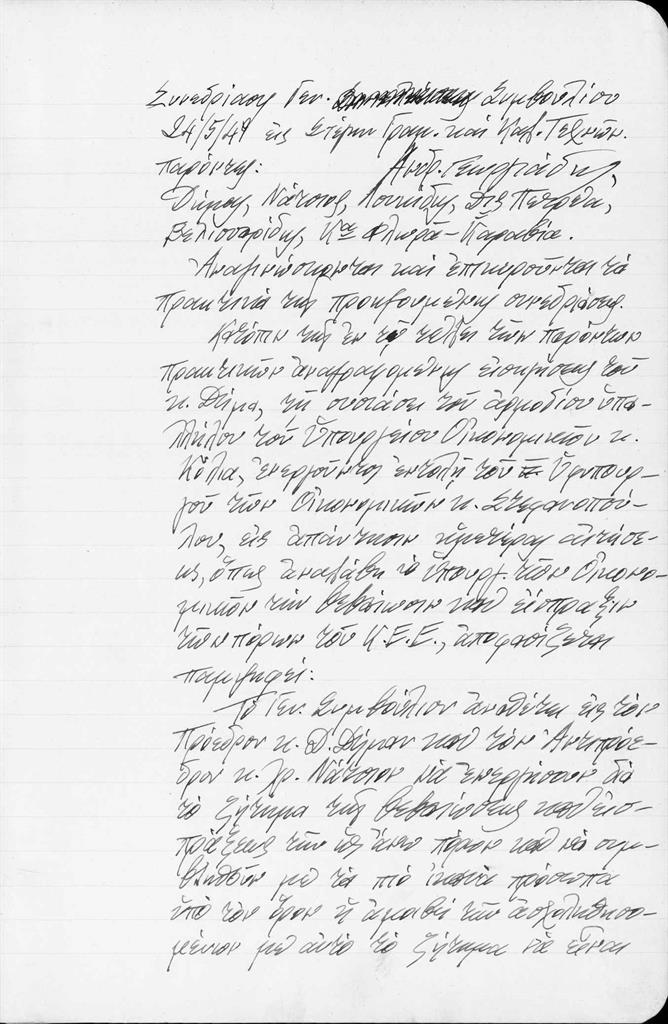 Συνεδρίασις Γεν. Συμβουλίου
24/5/49 εἰς Στέγην Γραμ. καὶ Καλ. Τεχνῶν.
παρόντες: Ἀνδρ. Γεωργιάδης,
Δήμας, Νάτσιος, Λουκίδης, Δὶς Πετρίδα,
Βελισσαρίδης, Κα Φλωρᾶ-Καραβία.
Ἀναγινώσκονται καὶ ἐπικυροῦνται τὰ
πρακτικὰ τῆς προηγουμένης συνεδριάσεως.
Κατόπιν τῆς ἐν τῷ τέλει τῶν παρόντων
πρακτικῶν ἀναγραφομένης εἰσηγήσεως τοῦ
κ. Δήμα, τῇ συστάσει τοῦ ἁρμοδίου ὑπα-
λλήλου τοῦ Ὑπουργείου Οἰκονομικῶν κ.
Κόλλια, ἐνεργοῦντος ἐντολῇ τοῦ Ὑφυπουρ-
γοῦ τῶν Οἰκονομικῶν κ. Στεφανοπού-
λου, εἰς ἀπάντησιν ἡμετέρας αἰτήσε-
ως, ὅπως ἀναλάβῃ τὸ ὑπουργ. τῶν Οἰκονο-
μικῶν τὴν βεβαίωσιν καὶ εἴσπραξιν
τῶν πόρων τοῦ Κ.Ε.Ε., ἀποφασίζεται
παμψηφεί:
Τὸ Γεν. Συμβούλιον ἀναθέτει εἰς τὸν
Πρόεδρον κ. Δ. Δήμαν καὶ τὸν Ἀντιπρόε-
δρον κ. Χρ. Νάτσιον νὰ ἐνεργήσουν διὰ
τὸ ζήτημα τῆς βεβαιώσεως καὶ εἰσ-
πράξεως τῶν ὡς ἄνω πόρων καὶ νὰ συμ-
βληθοῦν μὲ τὰ πιὸ ἱκανὰ πρόσωπα
ὑπὸ τὸν ὅρον ἡ ἀμοιβὴ τῶν ἀσχοληθησο-
μένων μὲ αὐτὸ τὸ ζήτημα νὰ εἶναι